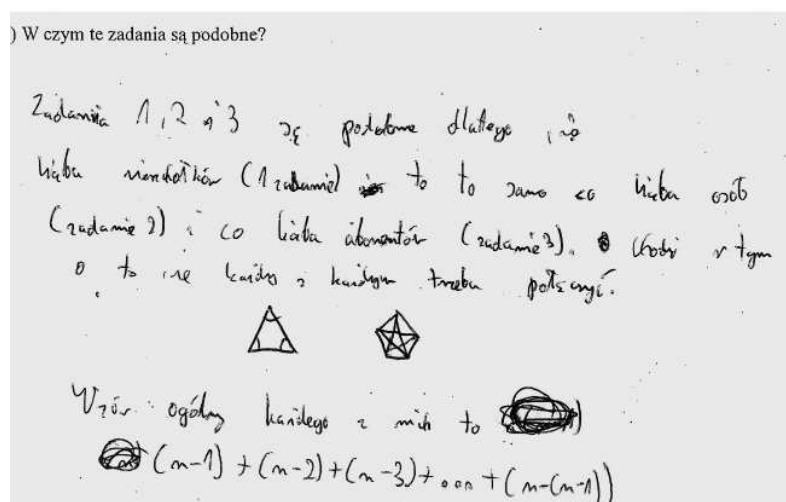 ) W czym te zadania są podobne?
Zadania 1, 2 i 3 są podobne dlatego, że
liczba wierzchołków (1 zadanie) to to samo co liczba osób
(zadanie 2) i co liczba abonentów (zadanie 3). Chodzi w tym
o to że każdy z każdym trzeba połączyć.
Wzór ogólny każdego z nich to
(n-1) + (n-2) + (n-3) + ... + (n-(n-1))